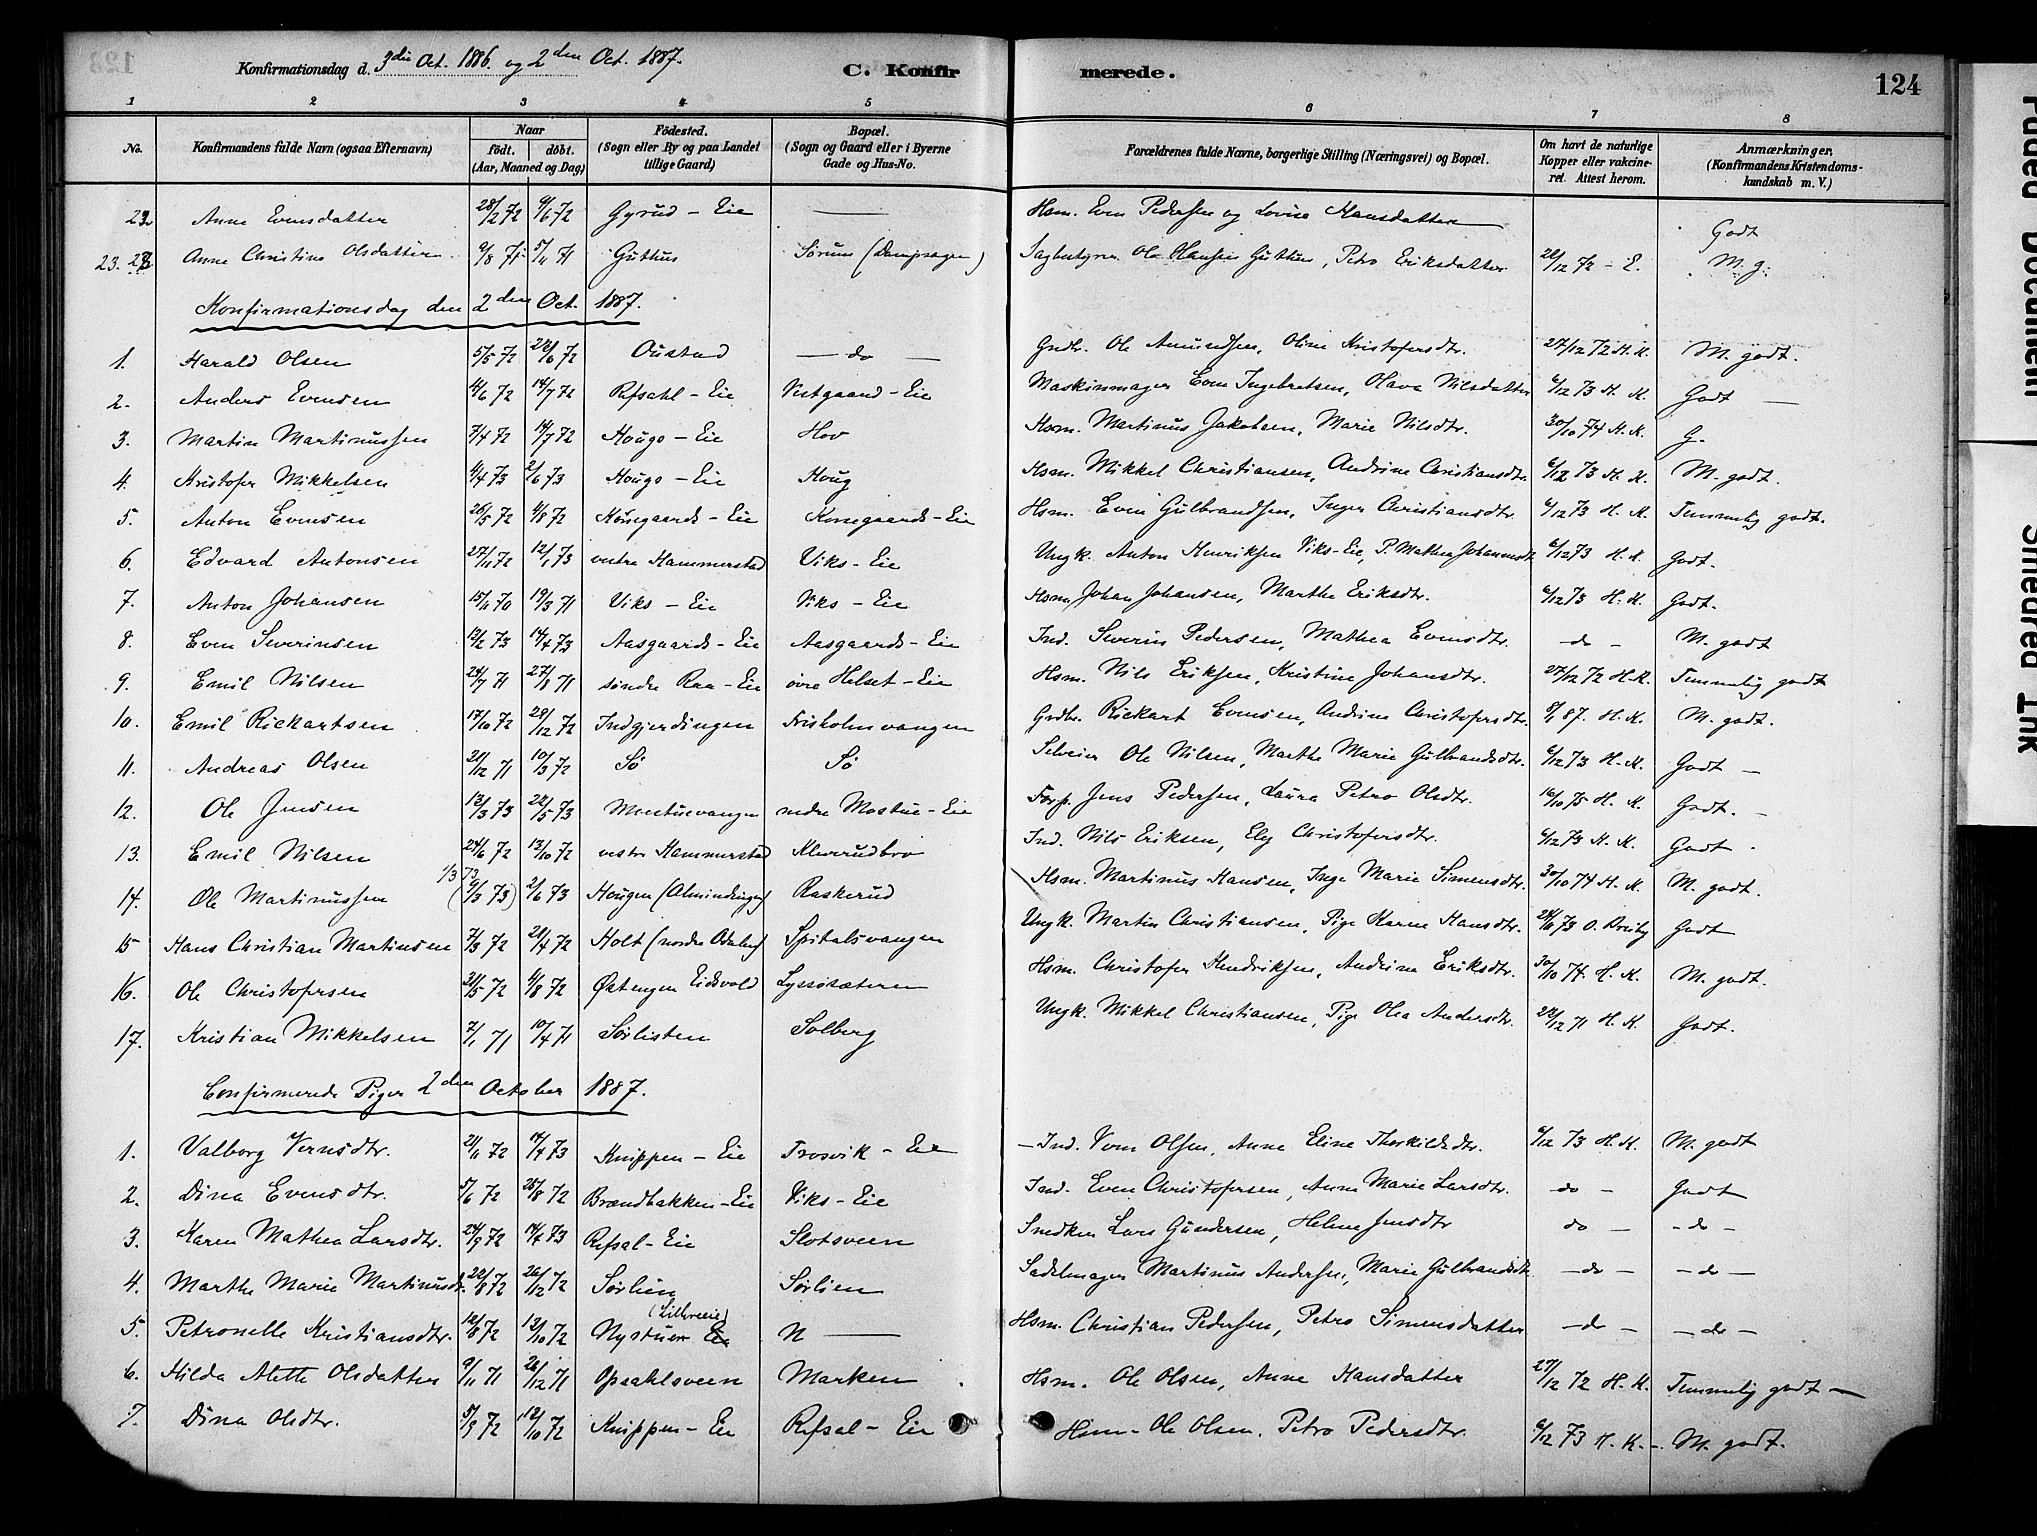 Konfirmationsdag d. 3die Oct. 1886. og 2den Oct. 1887.
C. Konfirmerede.
124
1 2 3 4 5 6 7 8
No.
Konfirmandens fulde Navn (ogsaa Efternavn)
Naar födt. döbt. (Aar, Maaned og Dag)
Födested. (Sogn eller By og paa Landet tillige Gaard)
Bopæl. (Sogn og Gaard eller i Byerne Gade og Hus-No.
Forældrenes fulde Navne, borgerlige Stilling (Næringsvei) og Bopæl.
Om havt de naturlige Kopper eller vakcineret. Attest herom.
Anmærkninger, (Konfirmandens Kristendomskundskab m. V.)
22 Anne Evensdatter 28/2 72 9/6 72 Gyrud - Eie — Hsm. Even Pedersen og Lovise Hansdatter Godt
23. Anne Christine Olsdatter 9/8 71 5/11 71 Guthus Sörum (Dampsagen) Sagbestyrer Ole Hansen Guthus, Petro Eriksdatter 28/12 72 - E. M. g.
Konfirmationsdag den 2den Oct. 1887.
1. Harald Olsen 5/5 72 22/6 72 Oustad — do — Grdbr. Ole Amundsen, Oline Kristofersdtr. 27/12 72 H. K. M. godt.
2. Anders Evensen 14/6 72 14/7 72 Refsahl - Eie Vestgaard - Eie Maskinmager Even Ingebretsen, Olava Nilsdatter 6/12 73 H. K. Godt —
3. Martin Martinussen 7/4 72 14/7 72 Hougs - Eie Hov Hsm. Martinus Jakobsen, Marie Nilsdtr. 30/10 74 H. K. G.
4. Kristofer Mikkelsen 4/4 73 2/6 73 Hougs - Eie Houg Hsm. Mikkel Christiansen, Andrine Christiansdtr. 6/12 73 H. K. M. godt.
5. Anton Evensen 26/5 72 4/8 72 Konsgaards - Eie Konsgaards - Eie Hsm. Even Gulbrandsen, Inger Christiansdtr. 6/12 73 H. K. Temmelig godt.
6. Edvard Antonsen 27/11 72 12/1 73 vestre Hammerstad Viks - Eie Ungk. Anton Henriksen Viks-Eie, P. Mathea Johannesdt. 6/12 73 H. K. Godt.
7. Anton Johansen 15/11 70 19/3 71 Viks - Eie Viks - Eie Hsm. Johan Johansen, Marthe Eriksdtr. 6/12 73 H. K. Godt.
8. Even Severinsen 12/2 73 14/4 73 Aasgaards - Eie Aasgaards - Eie Ind. Severin Pedersen, Mathea Evensdtr. — do — M. godt
9. Emil Nilsen 24/7 71 27/8 71 söndre Raa - Eie övre Helset - Eie Hsm. Nils Eriksen, Kristine Johansdtr. 27/12 72 H. K. Temmelig godt
10. Emil Rickartsen 17/10 72 29/12 72 Indgjerdingen Frisholmsvangen Grdbr. Rickart Evensen, Andrine Christofersdtr. 8/1 87. H. K. M. godt.
11. Andreas Olsen 21/12 71 10/3 72 Sö Sö Selveier Ole Nilsen, Marthe Marie Gulbrandsdtr. 6/12 73 H. K. Godt —
12. Ole Jensen 12/3 73 22/5 73 Mostuevangen nedre Mostue - Eie Forp. Jens Pedersen, Laura Petro Olsdtr. 16/10 75 H. K. Godt. -
13. Emil Nilsen 24/6 72 13/10 72 vestre Hammerstad Kleverudbro Ind. Nils Eriksen, Eli Christofersdtr. 6/12 73 H. K. Godt.
14. Ole Martinussen 1/3 73 (9/3 73) 2/6 73 Hougen (Almindingen) Raskerud Hsm. Martinus Hansen, Inge Marie Simensdtr. 30/10 74 H. K. M. godt.
15 Hans Christian Martinsen 7/3 72 21/4 72 Holt (nordre Odalen) Spitalsvangen Ungk. Martin Christiansen, Pige Karen Hansdtr. 24/11 73 Godt
16. Ole Christofersen 31/5 72 4/8 72 Østengen Eidsvold Lyssösæteren Hsm. Christofer Hendriksen, Andrine Eriksdtr. 30/10 74. H. K. M. godt.
17. Kristian Mikkelsen 7/1 71 10/4 71 Sörlisten Solberg Ungk. Mikkel Christiansen, Pige Olea Andersdtr. 22/12 71 H. K. Godt.
Confirmerede Piger 2den October 1887.
1. Valborg Vernsdtr. 21/11 72 14/4 73 Knippen - Eie Trosvik - Eie Ind. Vern Olsen, Anne Eline Thorkildsdtr. 6/12 73 H. K. M. godt
2. Dina Evensdtr. 5/6 72 25/8 72 Brændbakken - Eie Viks - Eie Ind. Even Christofersen, Anne Marie Larsdtr. do — Godt
3. Karen Mathea Larsdtr. 24/9 72 14/4 73 Refsal - Eie Slotsveen Snedker Lars Gundersen, Helene Jensdtr do — - do -
4. Marthe Marie Martinusdtr. 22/8 72 26/12 72 Sörlien Sörlien Sadelmager Martinus Andersen, Marie Gulbrandsdt. — do — - do —
5. Petronelle Kristiansdtr. 12/8 72 12/10 72 Nystuen Eie N — Hsm. Christian Pedersen, Petro Simensdatter — do — — do —
6. Hilda Alette Olsdatter 9/11 71 26/12 71 Opsahlsveen Marken Hsm. Ole Olsen, Anne Hansdatter 27/12 72 H. K. Temmelig godt —
7. Dina Olsdtr. 5/9 72 12/10 72 Knippen - Eie Refsal - Eie Hsm. Ole Olsen, Petro Pedersdtr. 6/12 73 H. K. M. godt.
Faded Document
Smeared Ink